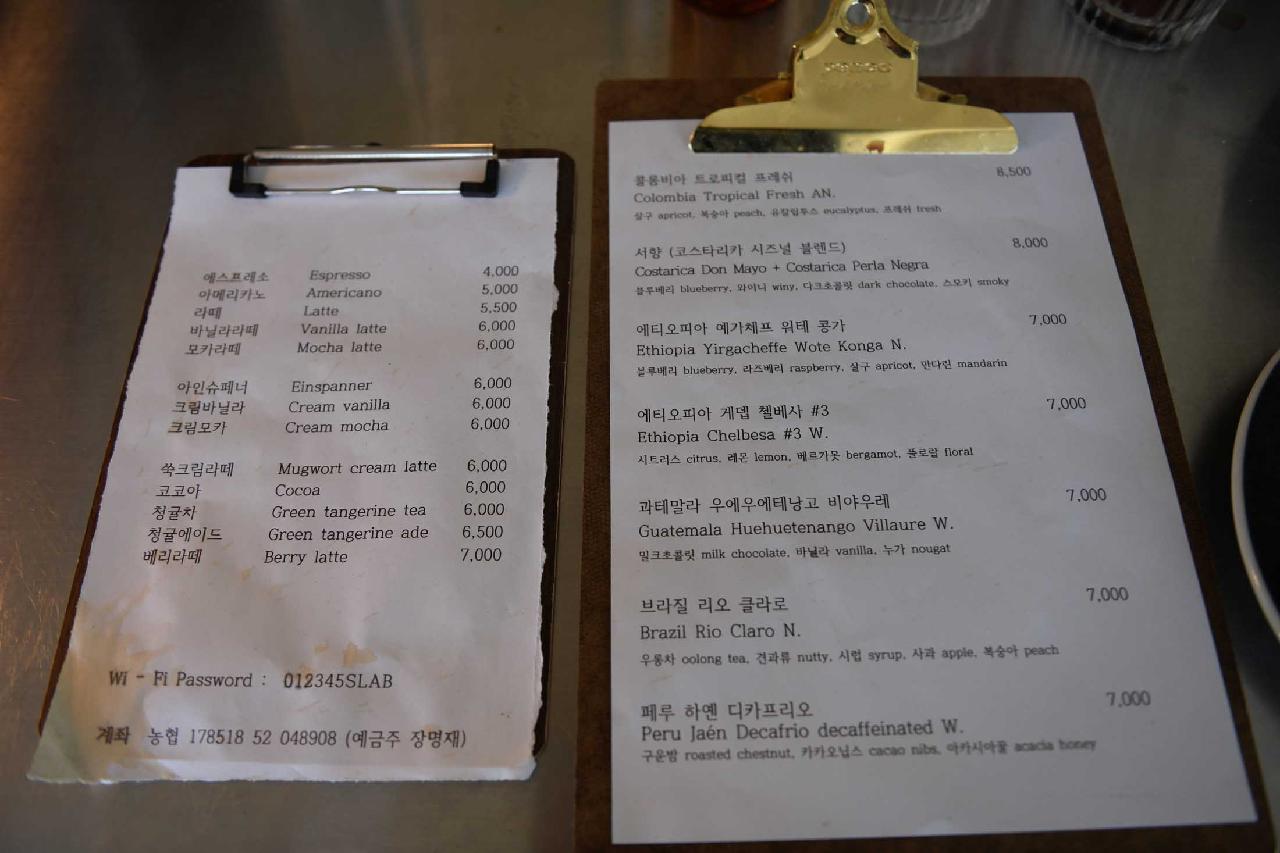 에스프레소 Espresso 4,000
아메리카노 Americano 5,000
라떼 Latte 5,500
바닐라라떼 Vanilla latte 6,000
모카라떼 Mocha latte 6,000
아인슈페너 Einspanner 6,000
크림바닐라 Cream vanilla 6,000
크림모카 Cream mocha 6,000
쑥크림라떼 Mugwort cream latte 6,000
코코아 Cocoa 6,000
청귤차 Green tangerine tea 6,000
청귤에이드 Green tangerine ade 6,500
베리라떼 Berry latte 7,000
Wi - Fi Password : 012345SLAB
계좌 농협 178518 52 048908 (예금주 장명재)
콜롬비아 트로피컬 프레쉬 8,500
Colombia Tropical Fresh AN.
살구 apricot, 복숭아 peach, 유칼립투스 eucalyptus, 프레쉬 fresh
서향 (코스타리카 시즈널 블렌드) 8,000
Costarica Don Mayo + Costarica Perla Negra
블루베리 blueberry, 와이니 winy, 다크초콜릿 dark chocolate, 스모키 smoky
에티오피아 예가체프 워테 콩가 7,000
Ethiopia Yirgacheffe Wote Konga N.
블루베리 blueberry, 라즈베리 raspberry, 살구 apricot, 만다린 mandarin
에티오피아 게뎁 첼베사 #3 7,000
Ethiopia Chelbesa #3 W.
시트러스 citrus, 레몬 lemon, 베르가못 bergamot, 플로랄 floral
과테말라 우에우에테낭고 비야우레 7,000
Guatemala Huehuetenango Villaure W.
밀크초콜릿 milk chocolate, 바닐라 vanilla, 누가 nougat
브라질 리오 클라로 7,000
Brazil Rio Claro N.
우롱차 oolong tea, 견과류 nutty, 시럽 syrup, 사과 apple, 복숭아 peach
페루 하엔 디카프리오 7,000
Peru Jaén Decafrio decaffeinated W.
구운밤 roasted chestnut, 카카오닙스 cacao nibs, 아카시아꿀 acacia honey